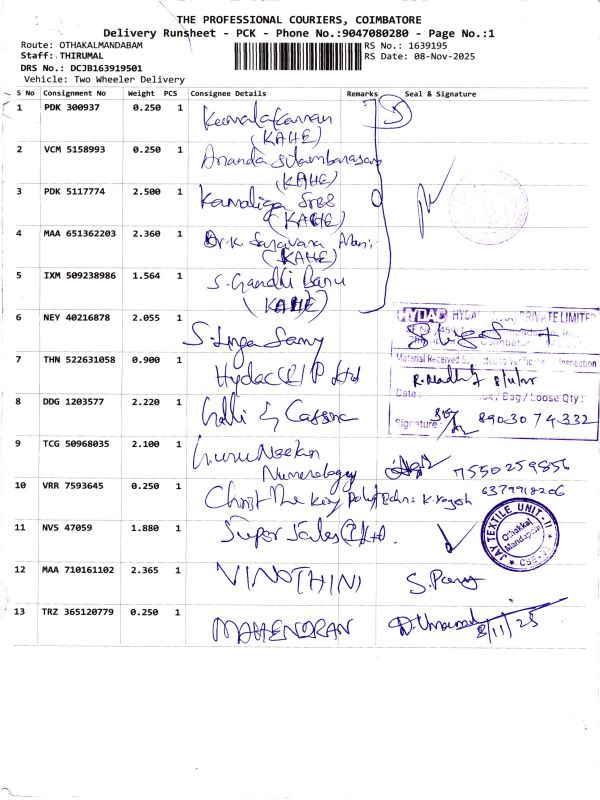 THE PROFESSIONAL COURIERS, COIMBATORE
Delivery Runsheet - PCK - Phone No.:9047080280 - Page No.:1
Route: OTHAKALMANDABAM
RS No.: 1639195
Staff: THIRUMAL
RS Date: 08-Nov-2025
DRS No.: DCJB163919501
Vehicle: Two Wheeler Delivery
S No Consignment No Weight PCS Consignee Details Remarks Seal & Signature
1 PDK 300937 0.250 1 Kamalakannan
(KAHE)
2 VCM 5158993 0.250 1 Ananda
(KAHE)
3 PDK 5117774 2.500 1
(KAHE)
4 MAA 651362203 2.360 1 Dr. K Saravana Mani
(KAHE)
5 IXM 509238986 1.564 1 S. Gandhi Banu
(KAHE)
6 NEY 40216878 2.055 1 S. Linga Samy
HYDAC PRIVATE LIMITED
Coimbatore
7 THN 522631058 0.900 1 Hydac (I) P Ltd
Material Received Inspection
R. Madh 8/11/25
8 DDG 1203577 2.220 1
Date: Box / Bag / Loose Qty:
Signature: 8903074332
9 TCG 50968035 2.100 1 Guru
Numerology
7550259856
10 VRR 7593645 0.250 1 Christ The King Polytechnic K. Yogesh
6379918206
11 NVS 47059 1.880 1 Super Sales (I) Ltd.
JAY TEXTILE UNIT-II
Othakkal
Mandapam
12 MAA 710161102 2.365 1 VINOTHINI
13 TRZ 365120779 0.250 1 MAHENDRAN
8/11/25